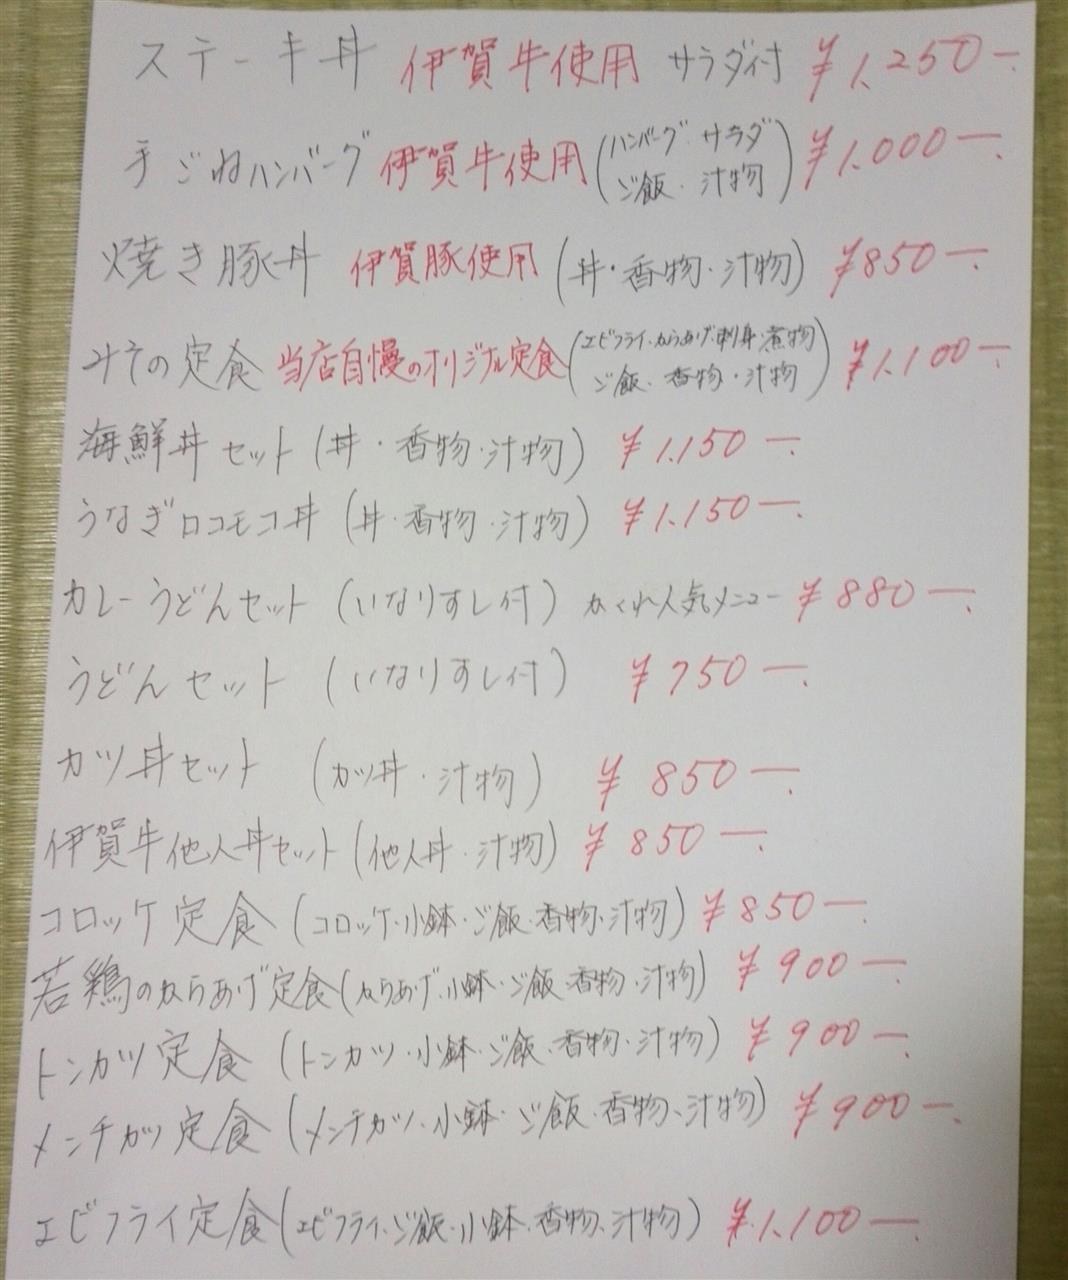 ステーキ丼 伊賀牛使用 サラダ付 ¥1,250ー.
手ごねハンバーグ 伊賀牛使用 (ハンバーグ・サラダ ご飯・汁物) ¥1.000ー.
焼き豚丼 伊賀豚使用 (丼・香物・汁物) ¥850ー.
みその定食 当店自慢のオリジナル定食 (エビフライ・からあげ・刺身・煮物 ご飯・香物・汁物) ¥1,100ー.
海鮮丼セット (丼・香物・汁物) ¥1.150ー.
うなぎロコモコ丼 (丼・香物・汁物) ¥1.150ー.
カレーうどんセット (いなりすし付) かくれ人気メニュー ¥880ー.
うどんセット (いなりすし付) ¥750ー.
カツ丼セット (カツ丼・汁物) ¥850ー.
伊賀牛他人丼セット (他人丼・汁物) ¥850ー.
コロッケ定食 (コロッケ・小鉢・ご飯・香物・汁物) ¥850ー.
若鶏のからあげ定食 (からあげ・小鉢・ご飯・香物・汁物) ¥900ー.
トンカツ定食 (トンカツ・小鉢・ご飯・香物・汁物) ¥900ー.
メンチカツ定食 (メンチカツ・小鉢・ご飯・香物・汁物) ¥900ー.
エビフライ定食 (エビフライ・ご飯・小鉢・香物・汁物) ¥1,100ー.